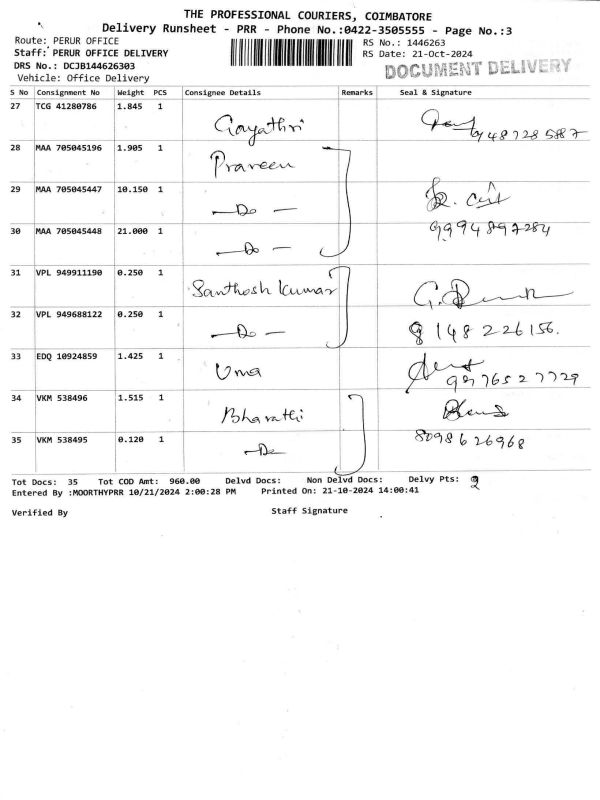 THE PROFESSIONAL COURIERS, COIMBATORE
Delivery Runsheet - PRR - Phone No.:0422-3505555 - Page No.:3
Route: PERUR OFFICE
RS No.: 1446263
Staff: PERUR OFFICE DELIVERY
RS Date: 21-Oct-2024
DRS No.: DCJB144626303
DOCUMENT DELIVERY
Vehicle: Office Delivery
S No Consignment No Weight PCS Consignee Details Remarks Seal & Signature
27 TCG 41280786 1.845 1 Gayathri
28 MAA 705045196 1.905 1 Praveen
29 MAA 705045447 10.150 1 - Do -
30 MAA 705045448 21.000 1 - Do - 9994897284
31 VPL 949911190 0.250 1 Santhosh Kumar
32 VPL 949688122 0.250 1 - Do - 8148226156.
33 EDQ 10924859 1.425 1 Uma 9976527729
34 VKM 538496 1.515 1 Bharathi
35 VKM 538495 0.120 1 - Do 8098626968
Tot Docs: 35 Tot COD Amt: 960.00 Delvd Docs: Non Delvd Docs: Delvy Pts:
Entered By :MOORTHYPRR 10/21/2024 2:00:28 PM Printed On: 21-10-2024 14:00:41
Verified By Staff Signature